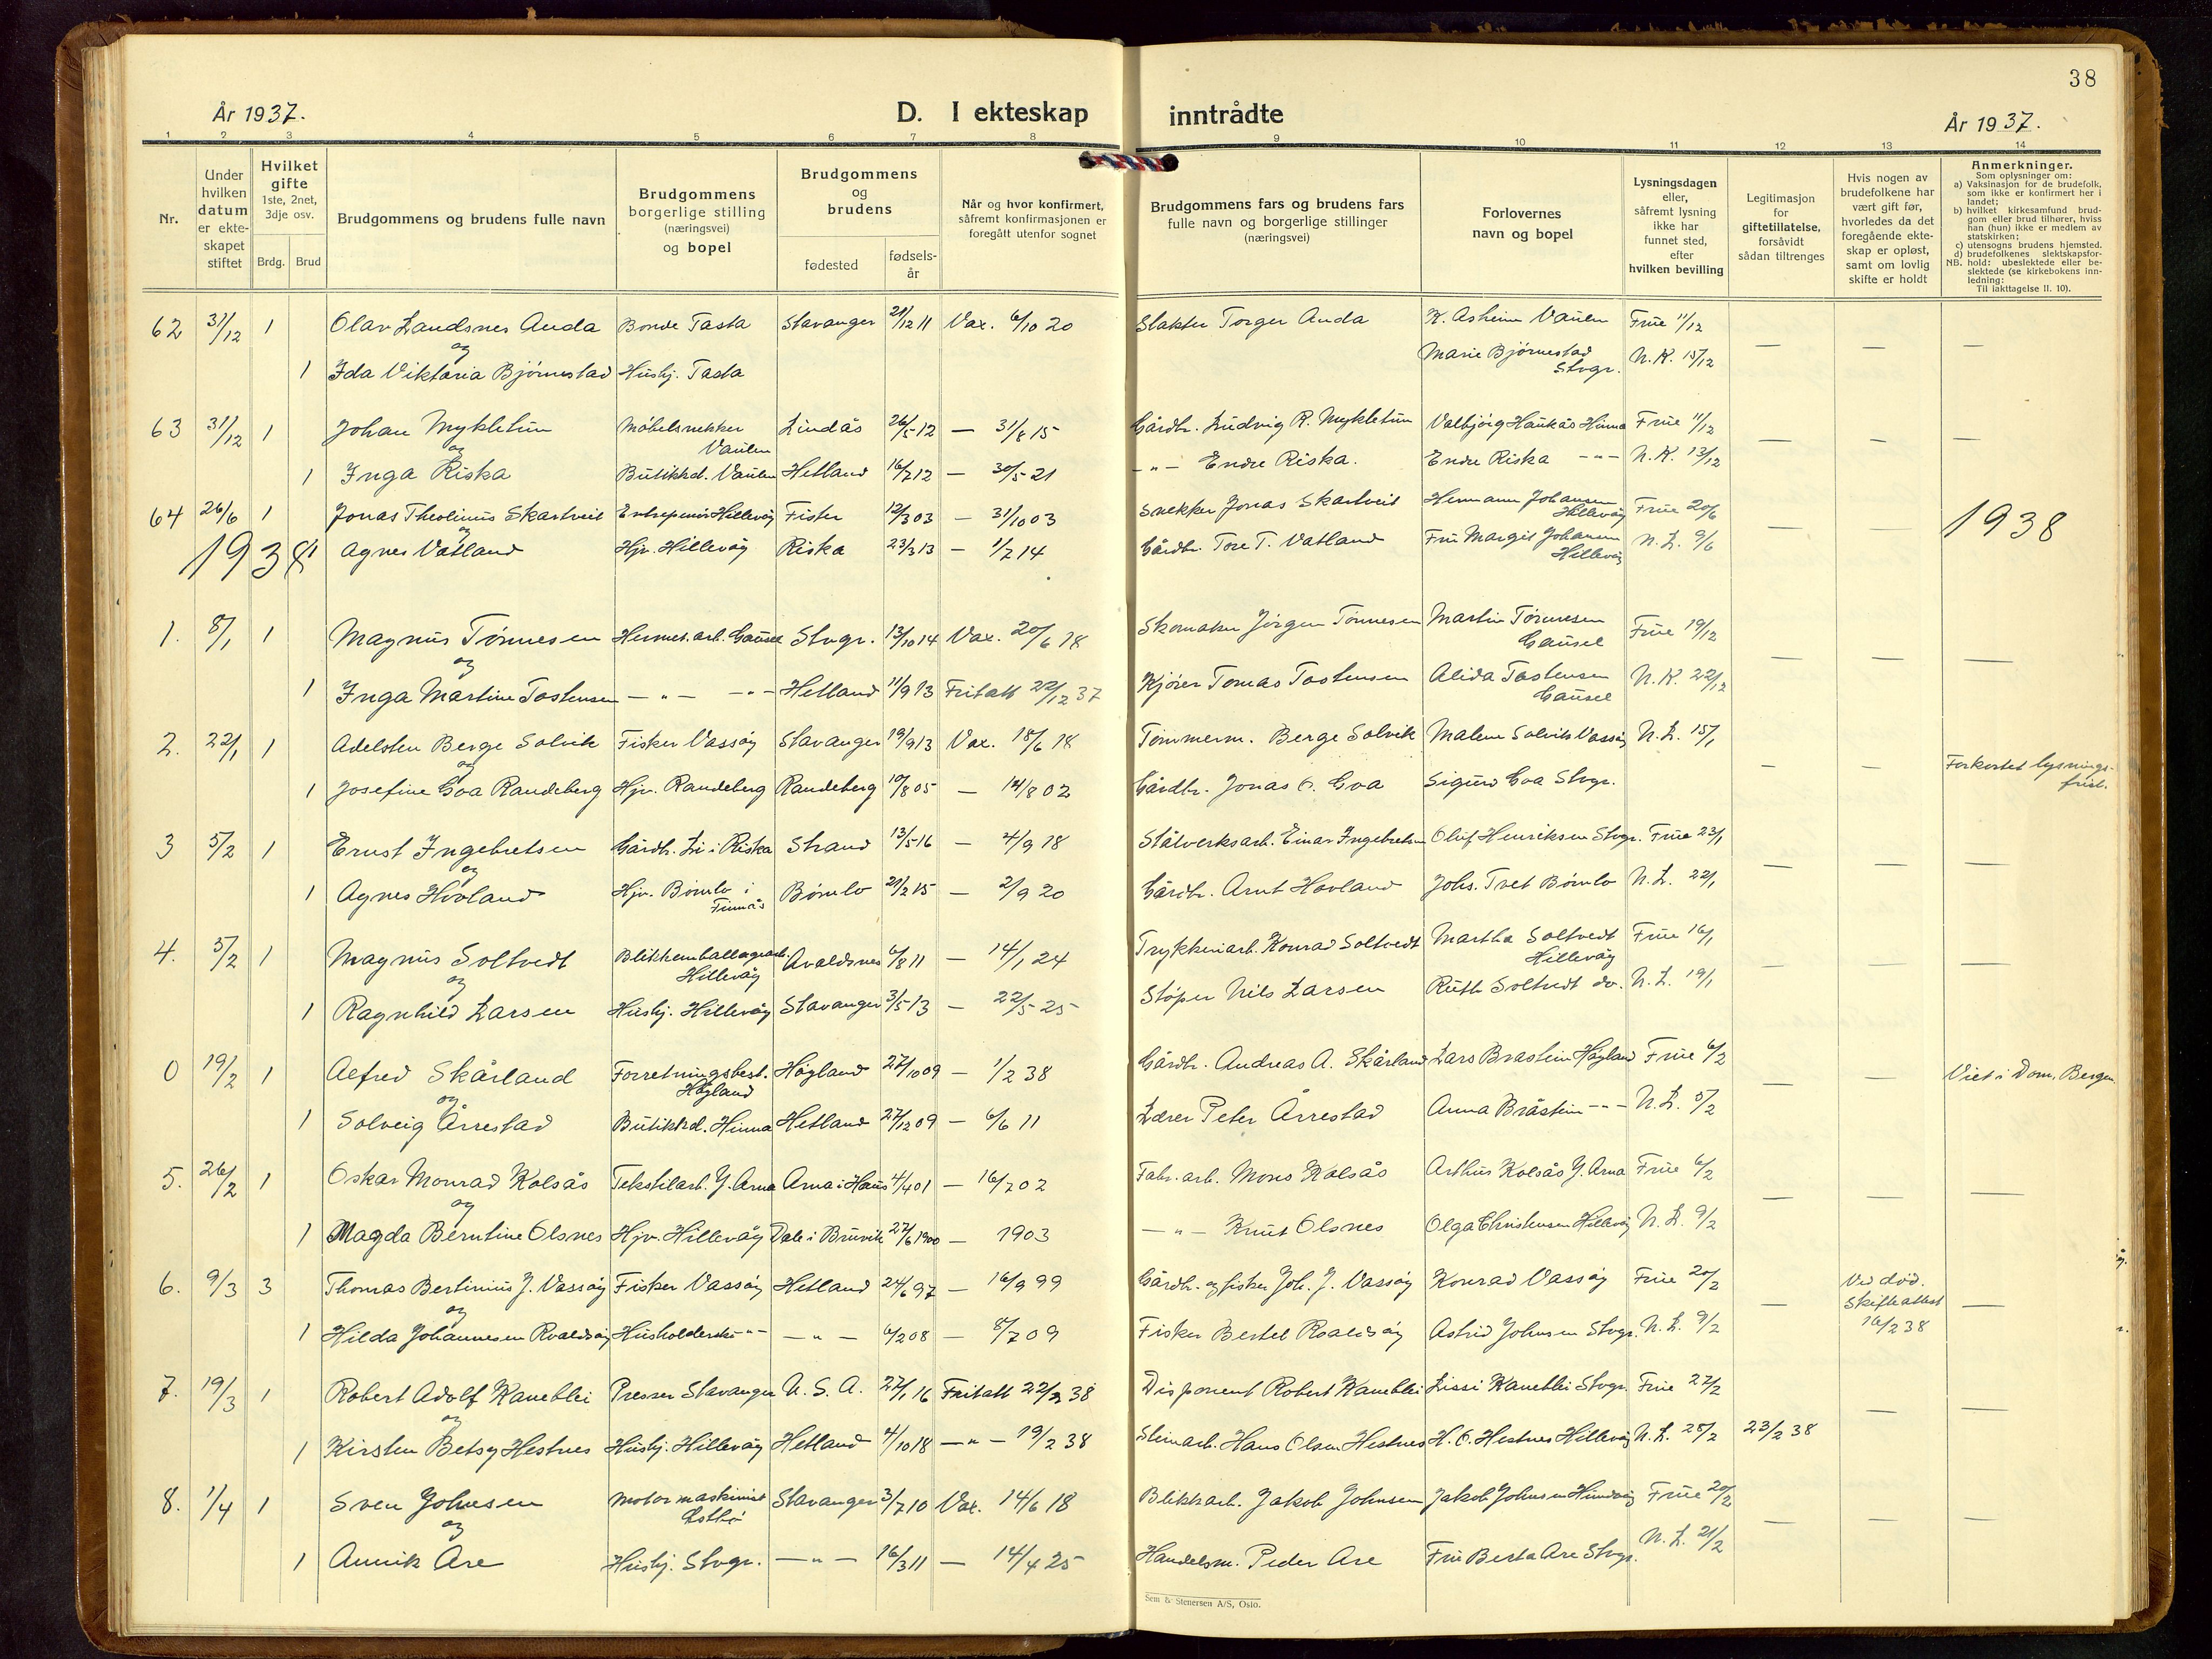 38
År 1937.
D. I ekteskap inntrådte
År 1937.
1 2 3 4 5 6 7 8 9 10 11 12 13 14
Nr.
Under hvilken datum er ekteskapet stiftet
Hvilket gifte 1ste, 2net, 3dje osv.
Brdg. Brud
Brudgommens og brudens fulle navn
Brudgommens borgerlige stilling (næringsvei) og bopel
Brudgommens og brudens
fødested
fødselsår
Når og hvor konfirmert, såfremt konfirmasjonen er foregått utenfor sognet
Brudgommens fars og brudens fars fulle navn og borgerlige stillinger (næringsvei)
Forlovernes navn og bopel
Lysningsdagen eller, såfremt lysning ikke har funnet sted, efter hvilken bevilling
Legitimasjon for giftetillatelse, forsåvidt sådan tiltrenges
Hvis nogen av brudefolkene har vært gift før, hvorledes da det foregående ekteskap er opløst, samt om lovlig skifte er holdt
Anmerkninger.
Som oplysninger om:
a) Vaksinasjon for de brudefolk, som ikke er konfirmert her i landet;
b) hvilket kirkesamfund brudgom eller brud tilhører, hviss han (hun) ikke er medlem av statskirken;
c) utensogns brudens hjemsted.
d) brudefolkenes slektskapsforhold: ubeslektede eller beslektede (se kirkebokens innledning:
NB.
Til iakttagelse II. 10).
62 31/12 1 Olav Landsnes Auda Bonde Tasta Stavanger 21/12 11 Vax. 6/10 20 Slakter Torger Auda K. Asheim Vaulen Frue 11/12
og
1 Ida Viktoria Bjørnestad Husbj. Tasta Marie Bjørnestad Stvgr. N.K. 15/12 — —
63 31/12 1 Johan Mykletun Møbelsnekker Vaulen Lindås 26/5 12 — 31/8 15 Gårdbr. Ludvig R. Mykletun Valbjørg Haukås Hinna Frue 11/12 — — —
og
1 Inga Riska Butikkd. Vaulen Hetland 16/7 12 — 30/5 21 —"— Endre Riska. Endre Riska —"— N.K. 13/12
64 26/6 1 Jonas Theolinus Skartveit Entreprenør Hillevåg Fister 12/3 03 — 31/10 03 Snekker Jonas Skartveit Hermann Johansen Hillevåg Frue 20/6 — —
og
1 Agnes Vatland Hjv. Hillevåg Riska 23/3 13 — 1/7 14 Gårdbr. Tore T. Vatland Fru Margit Johansen Hillevåg N.L. 9/6
1938
1938
1. 8/1 1 Magnus Tønnesen Hermet. arb. Gausel Stvgr. 13/10 14 Vax. 20/6 18 Skomaker Jørgen Tønnesen Martin Tønnesen Gausel Frue 19/12 — — —
og
1 Inga Martine Tostensen —"— —"— Hetland 11/9 13 Fritatt 22/12 37 Kjører Tomas Tostensen Alida Tostensen Gausel N.K. 22/12
2. 22/1 1 Adelsten Berge Solvik Fisker Vassøy Stavanger 19/9 13 Vax. 18/6 18 Tømmerm. Berge Solvik Malene Solvik Vassøy N.L. 15/1 — — Forkortet lysnings-
frist.
og
1 Josefine Goa Randeberg Hjv. Randeberg Randeberg 10/8 05 — 14/8 02 Gårdbr. Jonas O. Goa Sigurd Goa Stvgr.
3 5/2 1 Ernst Ingebretsen Gårdb. Li i Riska Strand 13/5 16 — 4/9 18 Stålverksarb. Einar Ingebretsen Oluf Henriksen Stvgr. Frue 23/1 — — —
og
1 Agnes Hovland Hjv. Bømlo i Finnås Bømlo 21/2 15 — 2/9 20 Gårdbr. Arnt Hovland Johs. Tvet Bømlo N.L. 22/1
4. 5/2 1 Magnus Soltvedt Blikkemballagearb. Hillevåg Avaldsnes 6/8 11 — 14/1 24 Trykkeriarb. Konrad Soltvedt Martha Soltvedt Hillevåg Frue 16/1 — — —
og
1 Ragnhild Larsen Husbj. Hillevåg Stavanger 3/5 13 — 22/5 25 Støper Nils Larsen Ruth Soltvedt do. N.L. 19/1
0 19/2 1 Alfred Skårland Forretningsbest. Høgland Høgland 27/10 09 — 1/2 38 Gårdbr. Andreas A. Skårland Lars Brastein Høgland Frue 6/2 — — Viet i Dom. Bergen
og
1 Solveig Årrestad Butikkd. Hinna Hetland 27/12 09 — 6/6 11 Lærer Peter Årrestad Anna Bråstein —"— N.L. 5/2
5. 26/2 1 Oskar Monrad Kolsås Tekstilarb. Y. Arna Arna i Haus 4/4 01 — 16/7 02 Fabr. arb. Mons Kolsås Arthur Kolsås Y. Arna Frue 6/2 — — —
og
1 Magda Berntine Olsnes Hjv. Hillevåg Dale i Bruvik 27/6 1900 — 1903 —"— Knut Olsnes Olga Christensen Hillevåg N.L. 9/2
6. 9/3 3 Thomas Bertinius J. Vassøy Fisker Vassøy Hetland 24/6 97 — 16/9 99 Gårdbr. og fisker Joh. J. Vassøy Konrad Vassøy Frue 20/2 — Ved død.
Skifteattest
16/2 38 —
og
1 Hilda Johannesen Roaldsøy Husholderske —"— —"— 6/2 08 — 8/7 09 Fisker Bertel Roaldsøy Astrid Johnsen Stvgr. N.L. 9/2
7. 19/3 1 Robert Adolf Kaneblei Presser Stavanger U.S.A. 27/1 16 Fritatt 22/2 38 Disponent Robert Kaneblei Lissi Kaneblei Stvgr. Frue 27/2 — —
og
1 Kirsten Betsy Hestnes Husbj. Hillevåg Hetland 4/10 18 —"— 19/2 38 Steinarb. Hans Olsen Hestnes H.O. Hestnes Hillevåg N.L. 25/2 23/2 38
8. 1/4 1 Sven Johnsen Motormaskinist Stavanger 3/7 10 Vax. 14/6 18 Blikkarb. Jakob Johnsen Jakob Johnsen Hundvåg Frue 20/2 — — —
og
1 Annik Are Husbj. Stvgr. —"— 16/3 11 — 14/4 25 Handelsm. Peder Are Fru Berta Are Stvgr. N.L. 21/2
Sem & Stenersen A/S, Oslo.